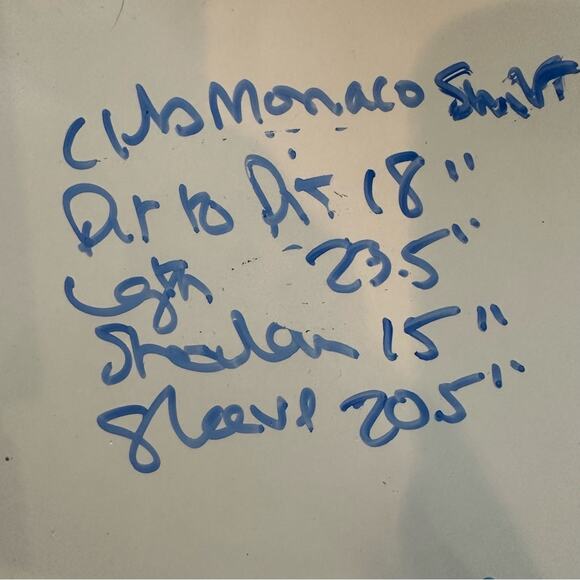 Club Monaco Shirt
Pit to Pit 18"
Lgth 23.5"
Shoulder 15"
Sleeve 20.5"